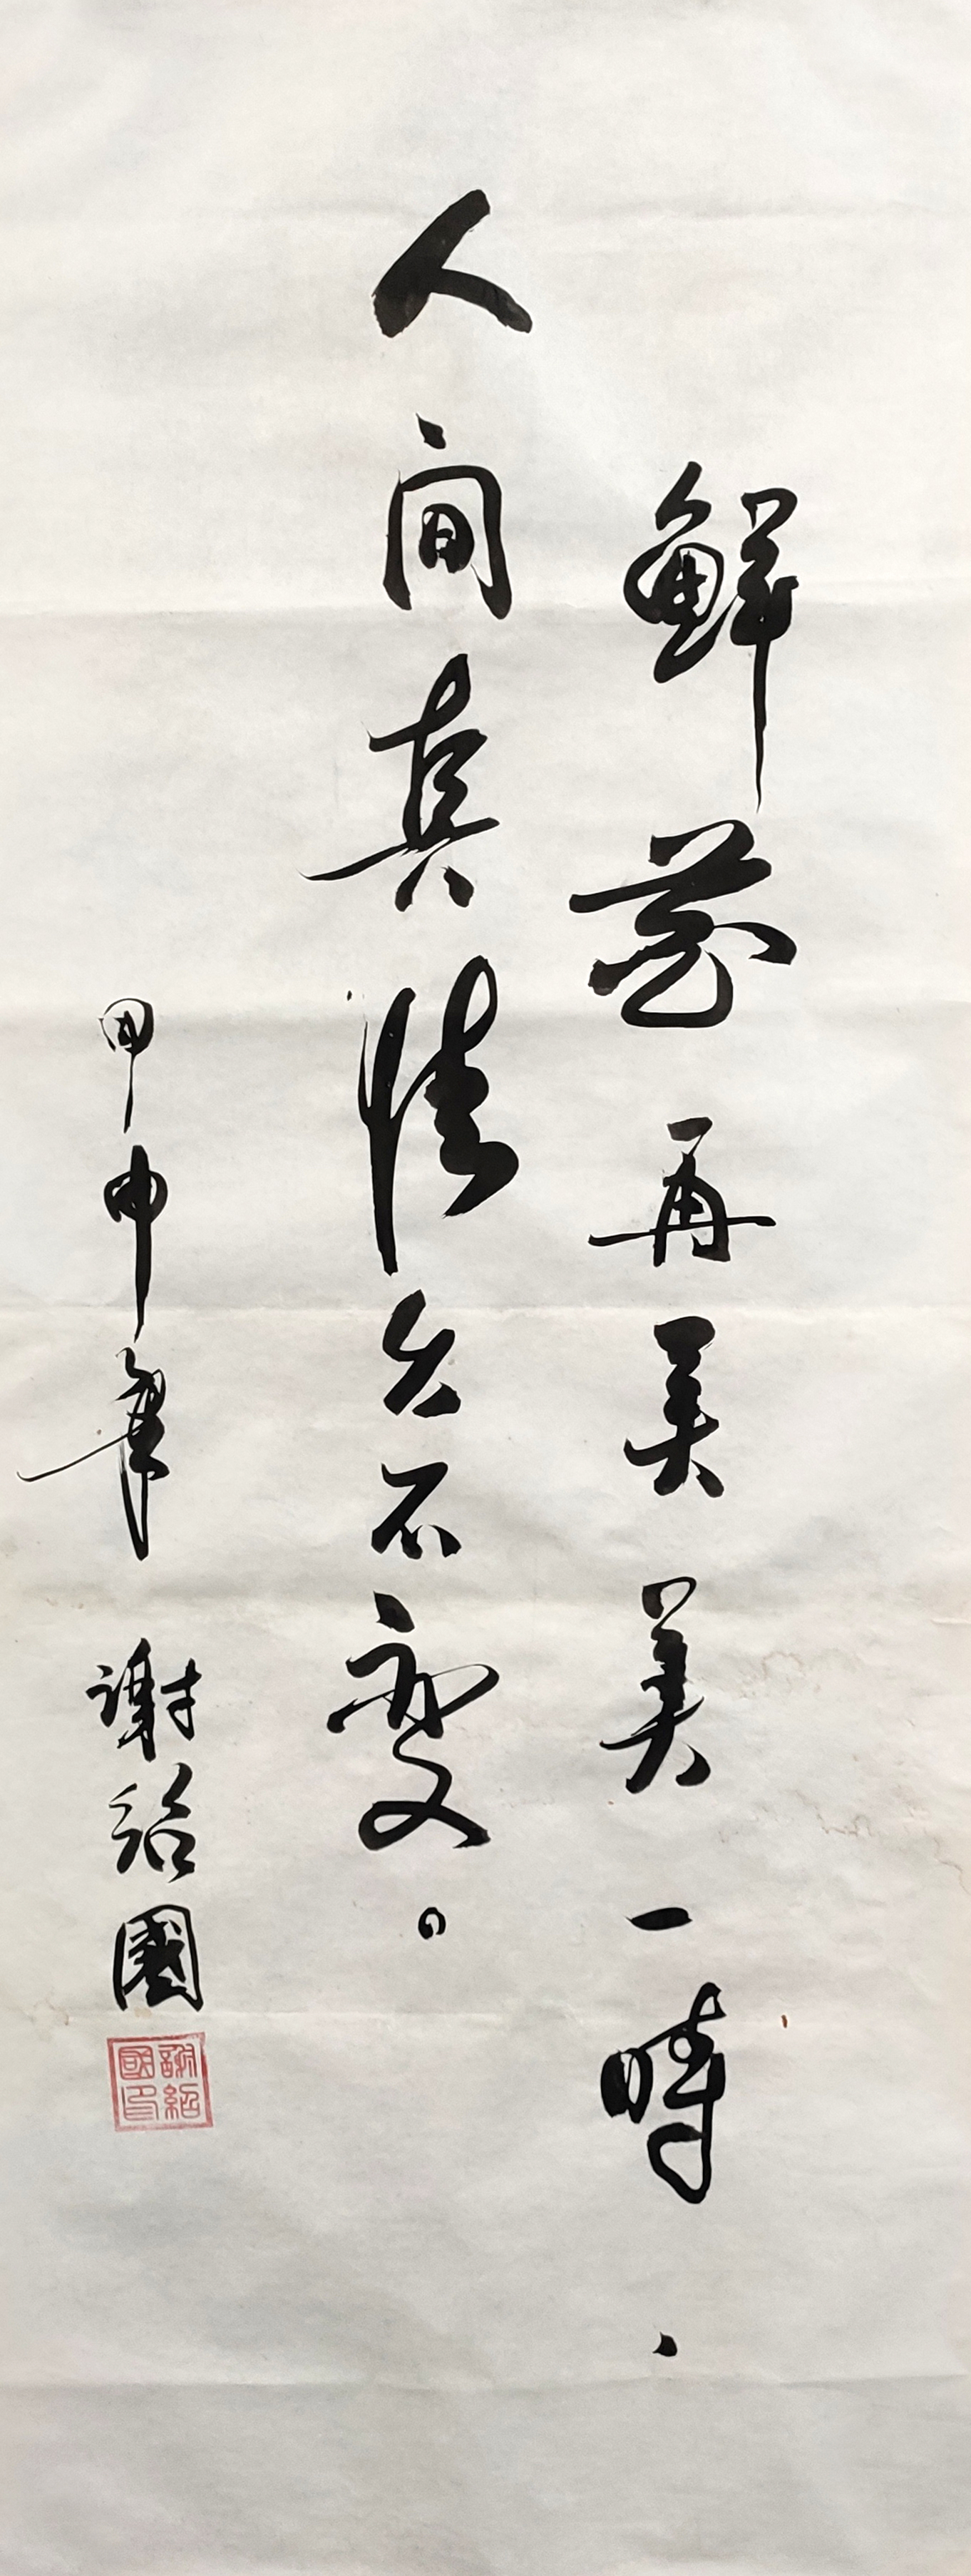 鮮花再美美一時，
人间真情久不變。
甲申年 謝紹國
謝紹國印